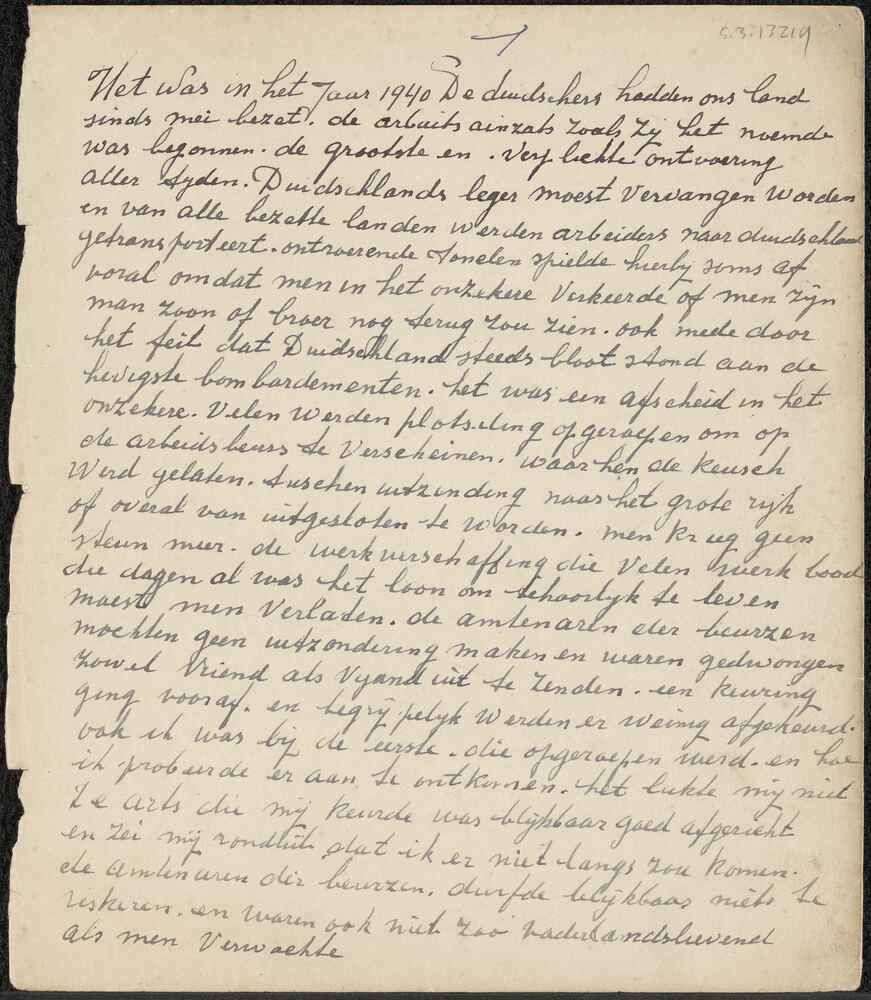 1
S.3.13219
Het was in het Jaar 1940 De duidschers hadden ons land
sinds mei bezet. de arbuits ainzats zoals zij het noemde
was begonnen. de grootste en. verplichte ontvoering
aller tyden. Duidschlands leger moest vervangen worden
en van alle bezette landen werden arbeiders naar duidschland
getransporteert. ontroerende tonelen spielde hierbij soms af
voral omdat men in het onzekere verkeerde of men zijn
man zoon of broer nog terug zou zien. ook mede door
het feit dat Duidschland steeds bloot stond aan de
hevigste bombardementen. het was een afscheid in het
onzekere. velen werden plotseling opgeroepen om op
de arbeidsbeurs te verscheinen. waar hen de keusch
werd gelaten. tuschen uitzending naar het grote rijk
of overal van uitgesloten te worden. men kreeg geen
steun meer. de werkverschaffing die velen werk bood
die dagen al was het loon om behoorlyk te leven
moest men verlaten. de amtenaren der beurzen
mochten geen uitzondering maken en waren gedwongen
zowel vriend als vyand uit te zenden. een keuring
ging vooraf. en begrijpelyk werden er weinig afgekeurd.
ook ik was bij de eerste. die opgeroepen werd. en hoe
ik probeerde er aan te ontkomen. het lukte mij niet
De arts die mij keurde was blijkbaar goed afgericht
en zei mij ronduit dat ik er niet langs zou komen.
de amtenaren der beurzen. durfde blijkbaar niets te
reskeren. en waren ook niet zoo vaderlandslievend
als men verwachte